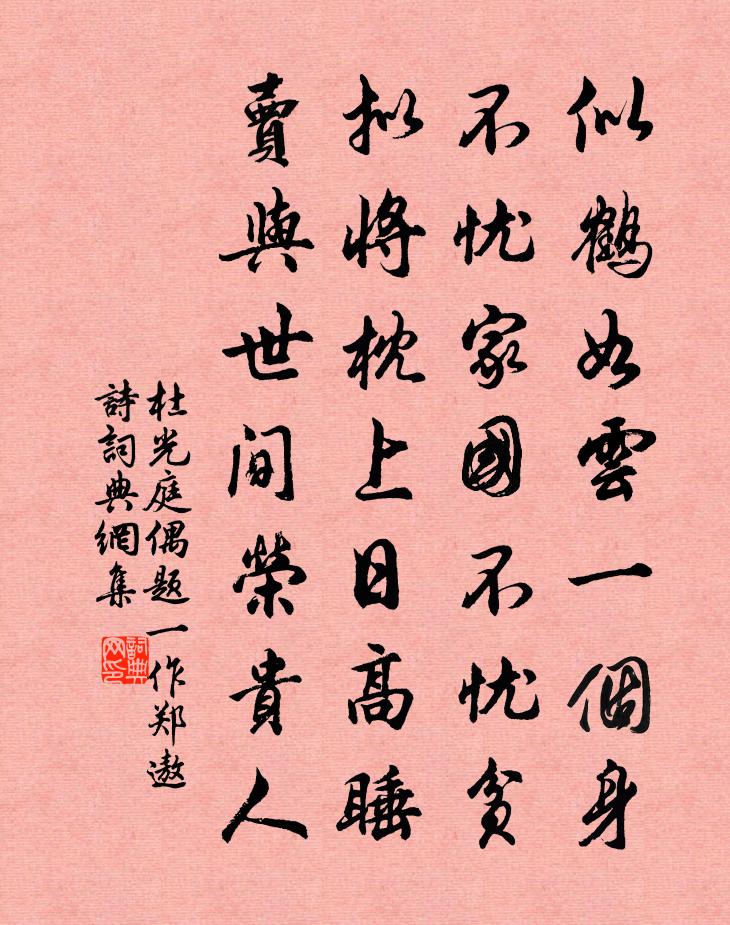 似鶴如雲一個身
不忧家國不忧貧
拟將枕上日高睡
賣與世間榮貴人
杜光庭偶題一作郑遨
詩詞典網集
詞典
网印